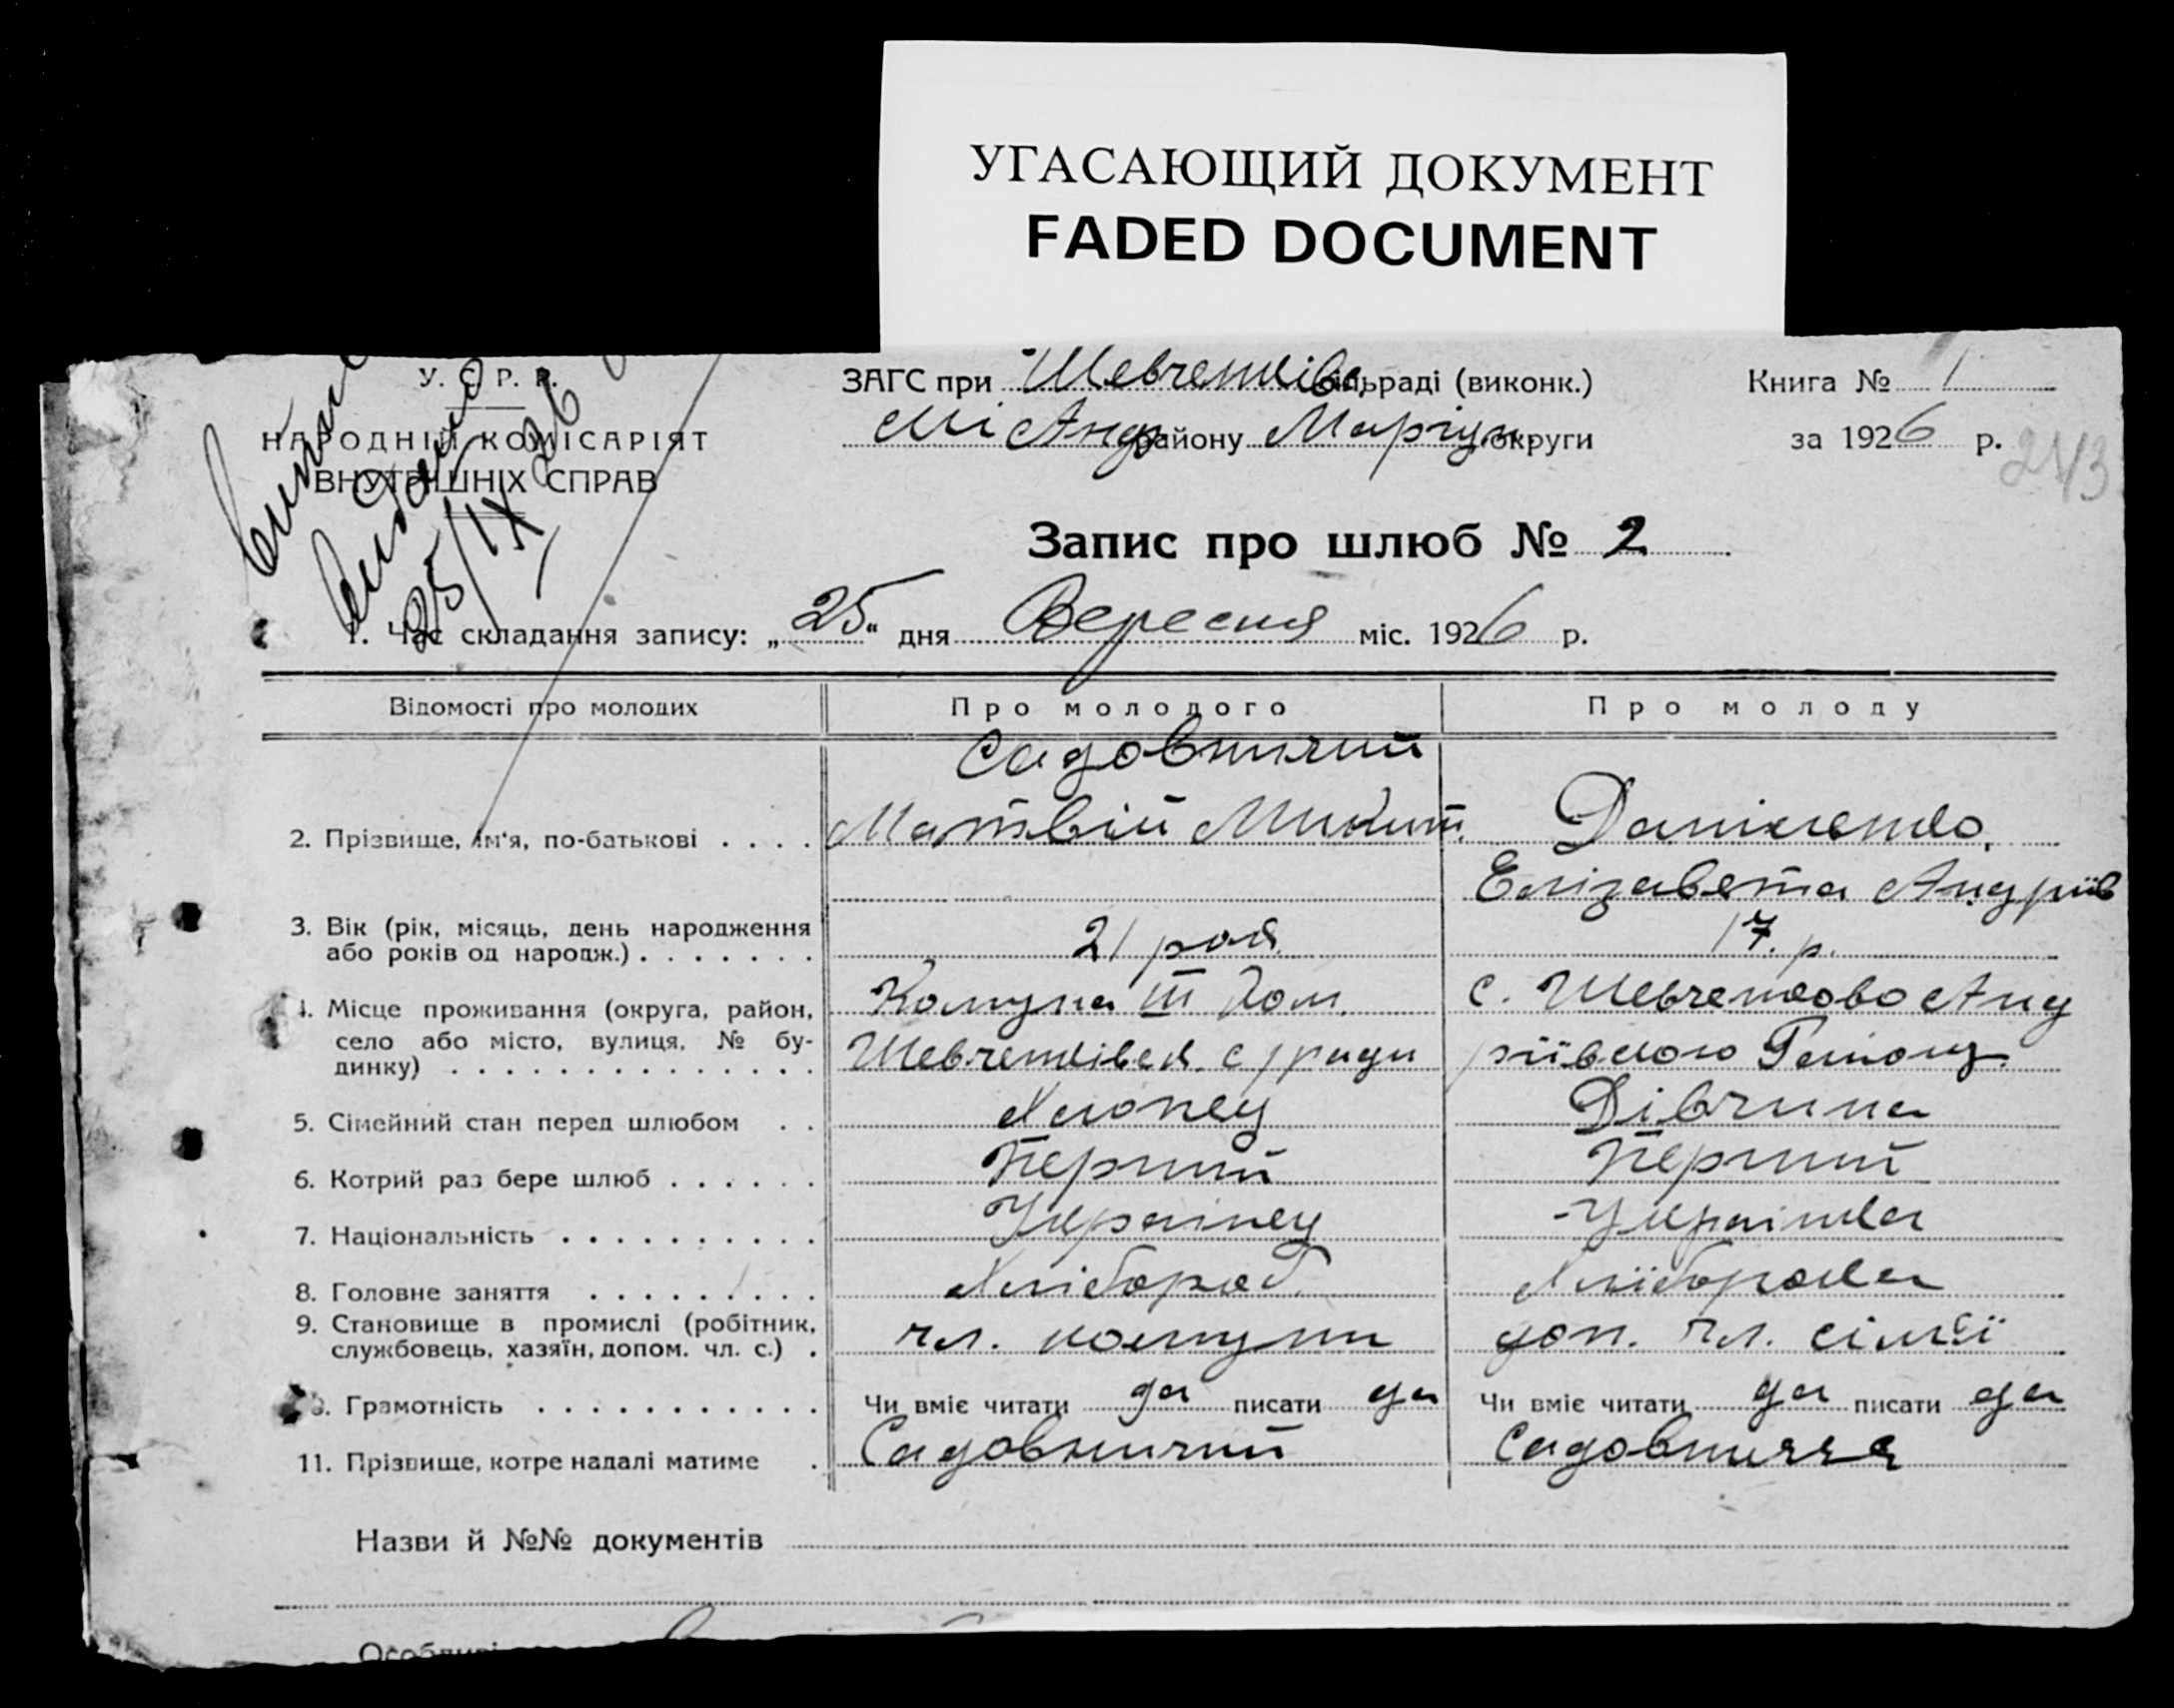 УГАСАЮЩИЙ ДОКУМЕНТ
FADED DOCUMENT
У. С. Р. Р.
НАРОДНІЙ КОМІСАРІЯТ
ВНУТРІШНІХ СПРАВ
25/IX 26
ЗАГС при Шевченківс. сільраді (виконк.)
Андр району Маріуп. округи
Книга № 1
за 1926 р.
Запис про шлюб № 2
1. Час складання запису: „25“ дня Вересня міс. 1926 р.
Відомості про молодих Про молодого Про молоду
Садовничий
2. Прізвище, ім'я, по-батькові . . . . Матвій Микит. Даниленко
Елізавета Андріїв
3. Вік (рік, місяць, день народження
або років од народж.) . . . . . . . 21 рок. 17. р.
4. Місце проживання (округа, район, Комуна III с. Шевченково Анд
село або місто, вулиця, № бу- Шевченківск. с/ради ріївского
динку) . . . . . . . . . . . . . .
5. Сімейний стан перед шлюбом . . Хлопец Дівчина
6. Котрий раз бере шлюб . . . . . . Перший Перший
7. Національність . . . . . . . . . . Украінец Украінка
8. Головне заняття . . . . . . . . . Хлібороб Хліборобка
9. Становище в промислі (робітник,
службовець, хазяїн, допом. чл. с.) . чл. комуни доп. чл. сімєї
10. Грамотність . . . . . . . . . . . Чи вміє читати да писати да Чи вміє читати да писати да
11. Прізвище, котре надалі матиме . Садовничий Садовничя
Назви й №№ документів